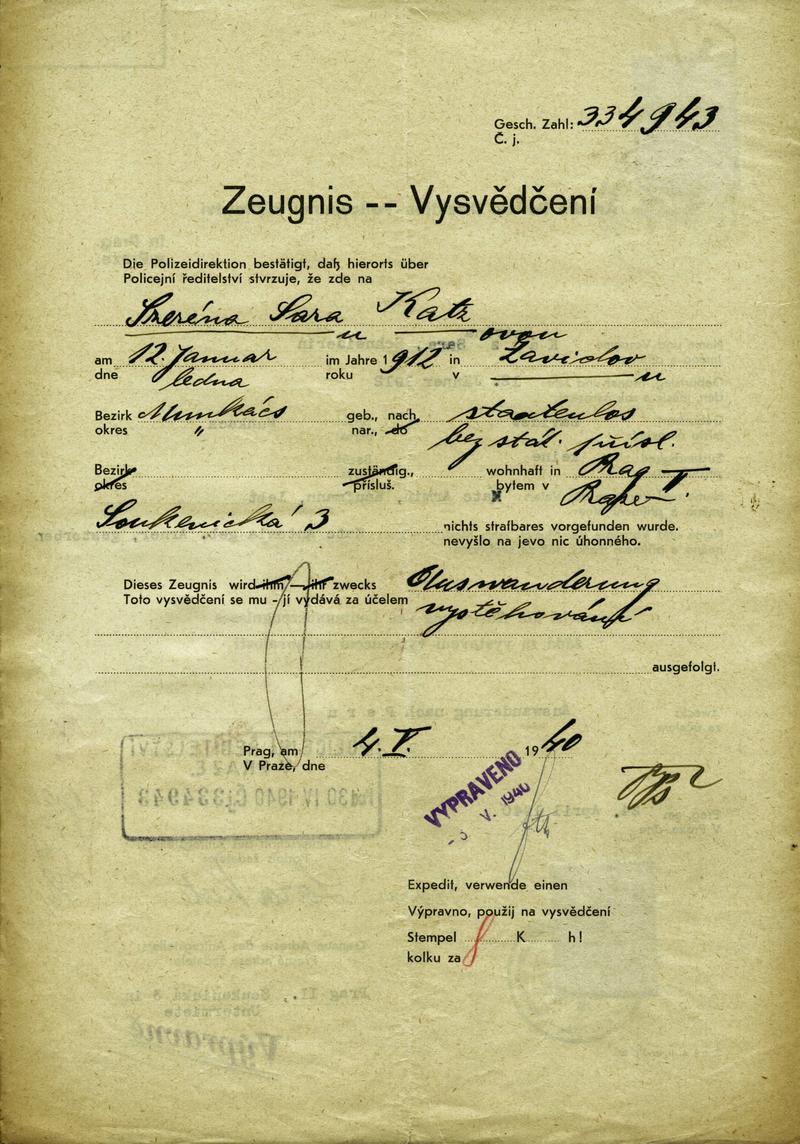 Gesch. Zahl: 334943
Č. j.
Zeugnis -- Vysvědčení
Die Polizeidirektion bestätigt, daß hierorts über
Policejní ředitelství stvrzuje, že zde na
Szeréna Sara Katz
u ovou
am 12. Januar im Jahre 1912 in Zavidov
dne ledna roku v u
Bezirk Munkács geb., nach staatenlos
okres " nar., do bez stát. přísl.
Bezirk zuständig., wohnhaft in Prag II.
okres přísluš. bytem v Praze
Soukenická 3 nichts strafbares vorgefunden wurde.
nevyšlo na jevo nic úhonného.
Dieses Zeugnis wird ihm — ihr zwecks Auswanderung
Toto vysvědčení se mu - jí vydává za účelem vystěhování
ausgefolgt.
Prag, am 4. V. 1940
V Praze, dne
VYPRAVENO
V. 1940
Expedit, verwende einen
Výpravno, použij na vysvědčení
Stempel K h!
kolku za